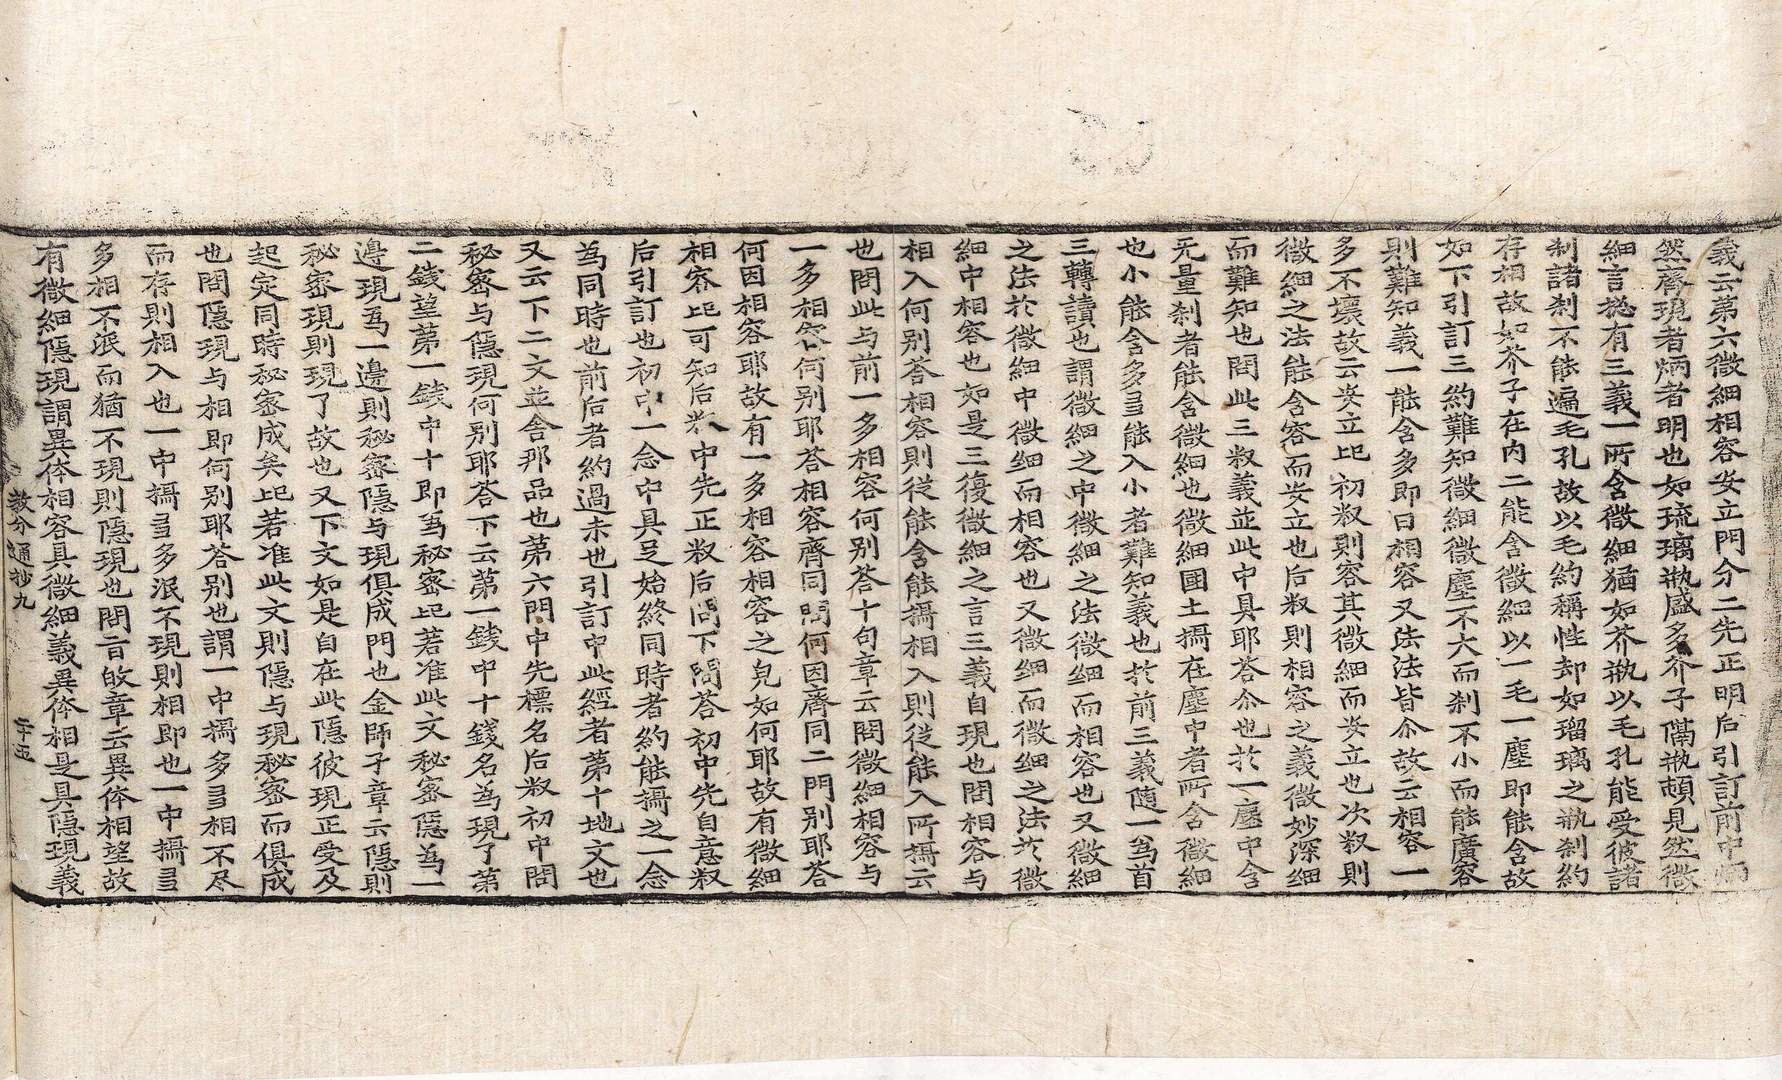 義云第六微細相容安立門分二先正明后引訂前中炳
然齊現者炳者明也如琉璃瓶盛多芥子滿瓶頓見然微
細言捴有三義一所含微細猶如芥瓶以毛孔能受彼諸
刹諸刹不能遍毛孔故以毛約稱性却如瑠璃之瓶刹約
存相故如芥子在內二能含微細以一毛一塵即能含故
如下引訂三約難知微細微塵不大而刹不小而能廣容
則難知義一能含多即曰相容又法法皆尒故云相容一
多不壞故云安立㠯初叙則容其微細而安立也次叙則
微細之法能含容而安立也后叙則相容之義微妙深細
而難知也問此三叙義並此中具耶荅尒也扵一塵中含
无量刹者能含微細也微細國土攝在塵中者所含微細
也小能含多多能入小者難知義也扵前三義随一為首
三轉讀也謂微細之中微細之法微細而相容也又微細
之法扵微細中微細而相容也又微細而微細之法扵微
細中相容也如是三復微細之言三義自現也問相容与
相入何别荅相容則從能含能攝相入則從能入所攝云
也問此与前一多相容何别荅十句章云問微細相容与
一多相容何别耶荅相容齊同問何因齊同二門别耶荅
何因相容耶故有一多相容相容之見如何耶故有微細
相容㠯可知后叙中先正叙后問下問荅初中先自意叙
后引訂也初中一念中具足始終同時者約能攝之一念
為同時也前后者約過未也引訂中此經者第十地文也
又云下二文並舍那品也第六門中先標名后叙初中問
秘密与隱現何别耶荅下云第一錢中十錢名為現了第
二錢望第一錢中十即為秘密㠯若准此文秘密隱為一
邊現為一邊則秘密隱与現俱成門也金師子章云隱則
秘密現則現了故也又下文如是自在此隱彼現正受及
起定同時秘密成矣㠯若准此文則隱与現秘密而俱成
也問隱現与相即何别耶荅别也謂一中攝多多相不尽
而存則相入也一中攝多多泯不現則相即也一中攝多
多相不泯而猶不現則隱現也問旨故章云異体相望故
有微細隱現謂異体相容具微細義異体相是具隱現義
教分通抄九　二十五